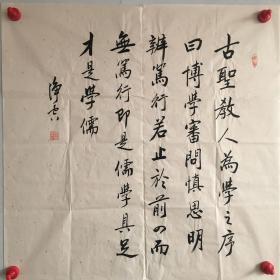 古聖教人為學之序
曰博學審問慎思明
辨篤行若止於前四而
無篤行即是儒學具足
才是學儒
淨空